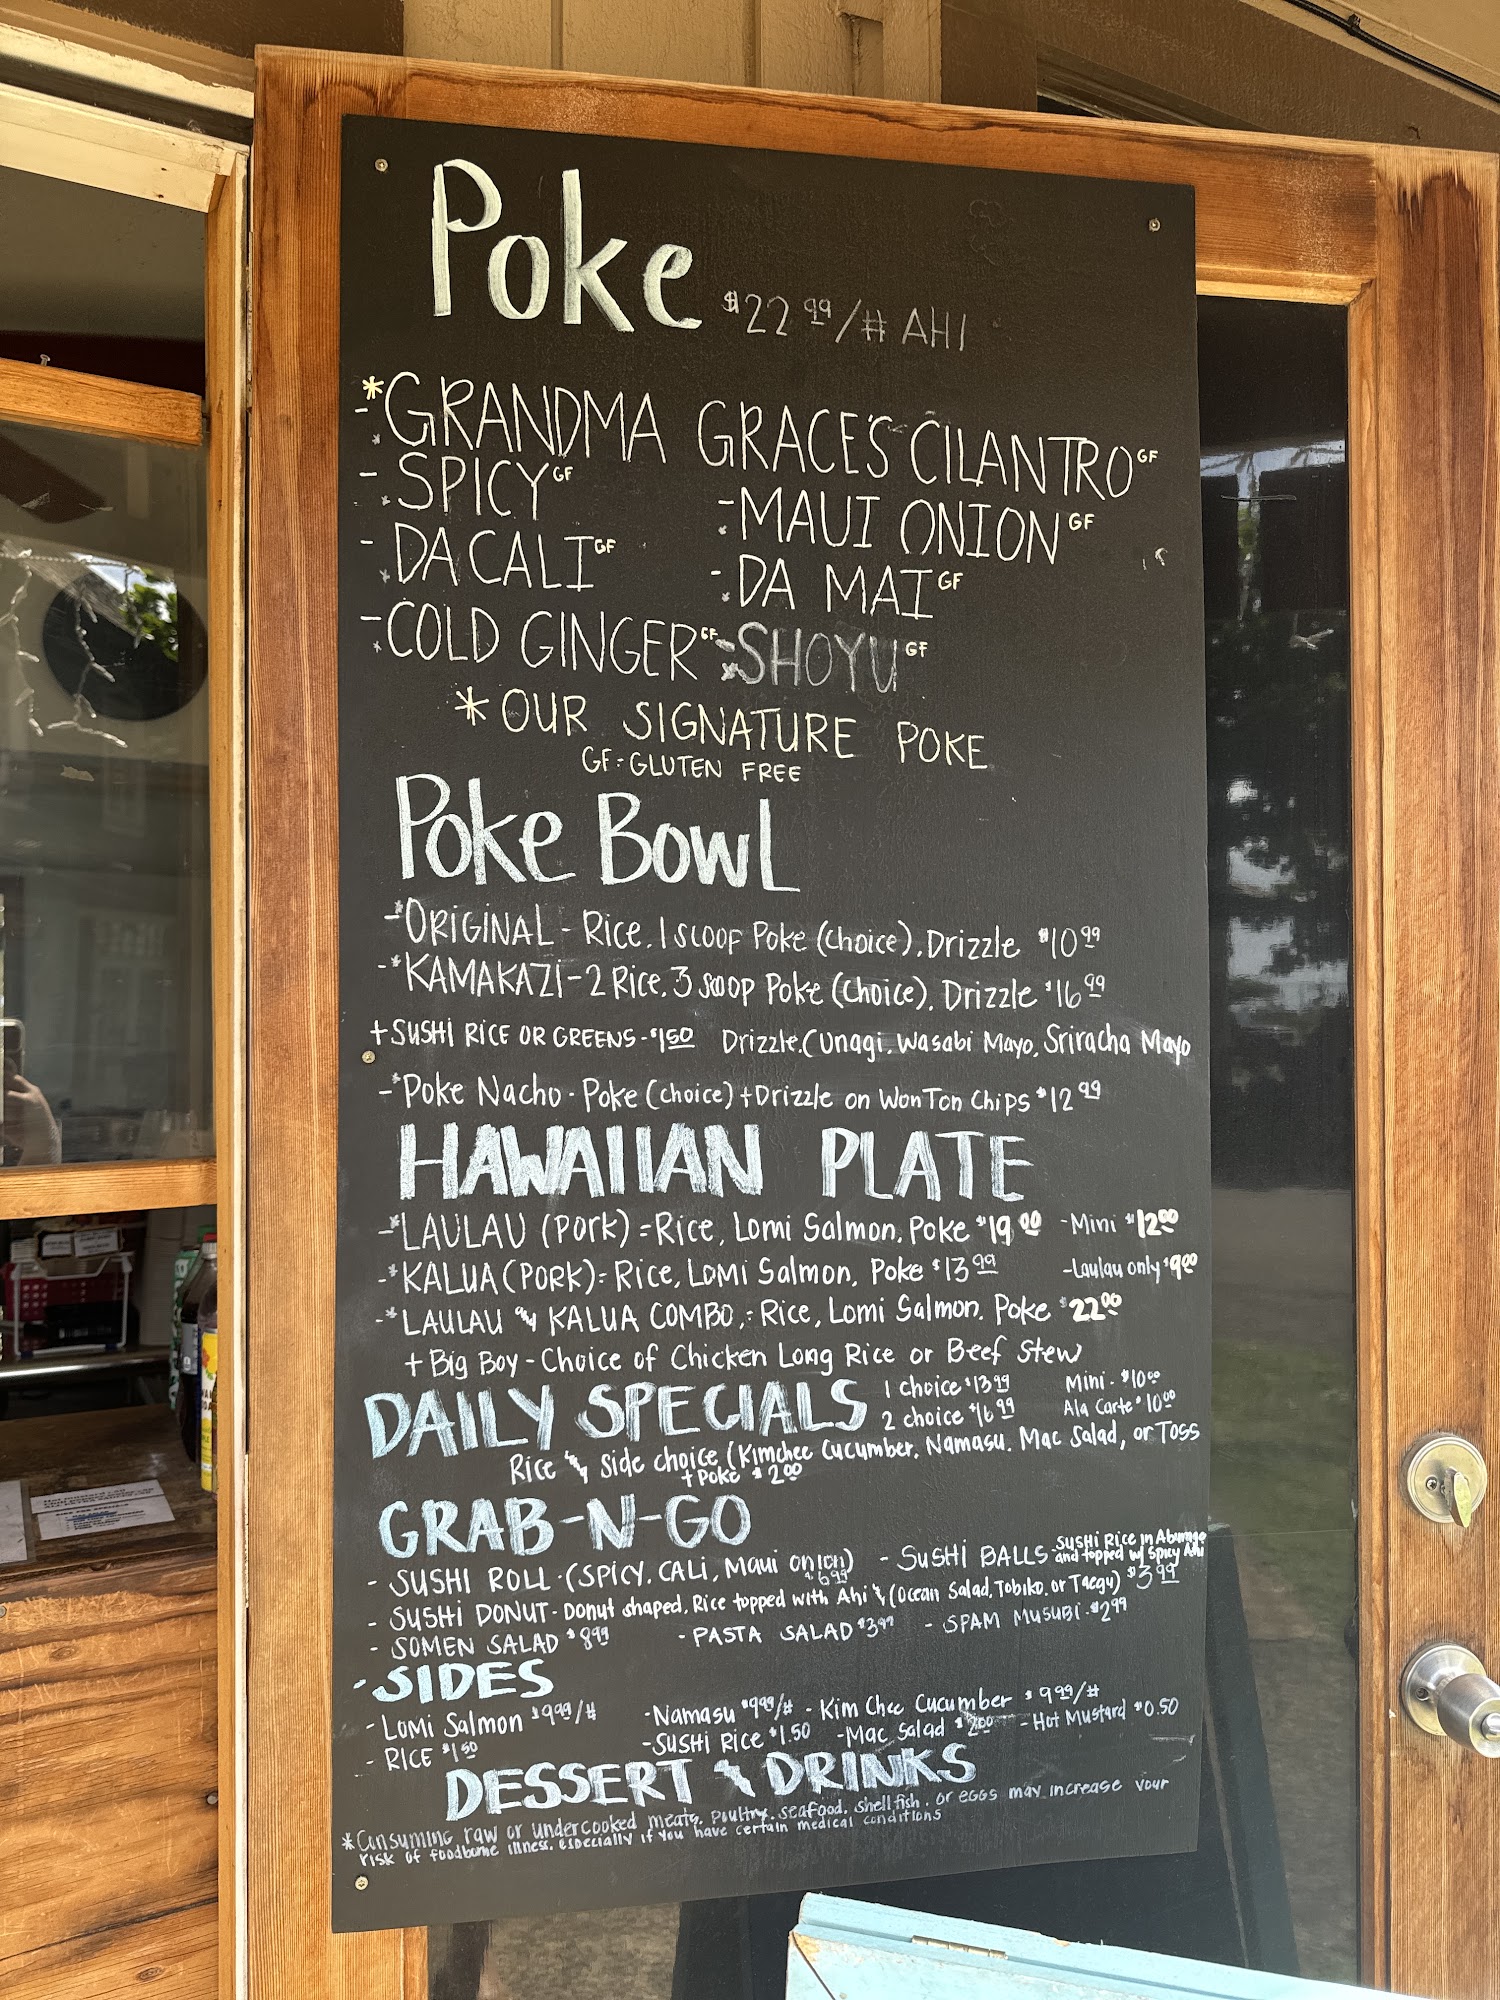 Poke $22.99/# AHI
-*GRANDMA GRACE'S CILANTRO GF
- SPICY GF
-MAUI ONION GF
- DA CALI GF
-DA MAI GF
-COLD GINGER GF
-SHOYU GF
*OUR SIGNATURE POKE
GF-GLUTEN FREE
Poke Bowl
-*ORIGINAL - Rice, 1 scoop Poke (choice), Drizzle $10.99
-*KAMAKAZI - 2 Rice, 3 scoop Poke (choice), Drizzle $16.99
+SUSHI RICE OR GREENS - $1.50 Drizzle, (Unagi, Wasabi Mayo, Sriracha Mayo
-*Poke Nacho - Poke (choice) + Drizzle on WonTon Chips $12.99
HAWAIIAN PLATE
-*LAULAU (Pork) = Rice, Lomi Salmon, Poke $19.00 -Mini $12.00
-*KALUA (PORK) = Rice, Lomi Salmon, Poke $13.99 -Laulau only $9.00
-*LAULAU & KALUA COMBO, = Rice, Lomi Salmon, Poke $22.00
+ Big Boy - Choice of Chicken Long Rice or Beef Stew
DAILY SPECIALS 1 choice $13.99 Mini - $10.00
2 choice $16.99 Ala Carte $10.00
Rice & side choice (Kimchee Cucumber, Namasu, Mac Salad, or Toss
+ Poke $2.00
GRAB-N-GO
- SUSHI ROLL - (SPICY, CALI, Maui onion) $6.99
- SUSHI BALLS - SUSHI Rice in Aburage and topped w/ Spicy Ahi $3.99
- SUSHI DONUT - Donut shaped, Rice topped with Ahi & (Ocean Salad, Tobiko, or Taegu)
- SOMEN SALAD $8.99 - PASTA SALAD $3.99 - SPAM MUSUBI - $2.99
-SIDES
- Lomi Salmon $9.99/# -Namasu $9.99/# - Kim Chee Cucumber $9.99/#
- RICE $1.50 -SUSHI Rice $1.50 -Mac Salad $2.00 - Hot Mustard $0.50
DESSERT & DRINKS
*Consuming raw or undercooked meats, poultry, seafood, shellfish, or eggs may increase your
risk of foodborne illness, especially if you have certain medical conditions